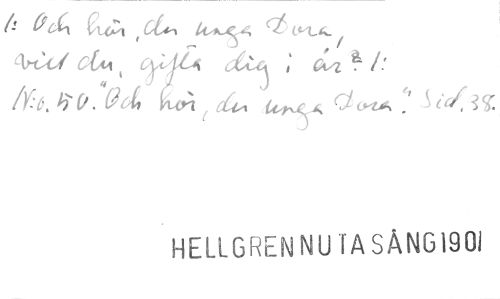 /: Och hör, du unga Dora,
vill du, gifta dig i år? /:
N:o. 50. "Och hör, du unga Dora". Sid. 38.
HELLGREN NUTA SÅNG 1901